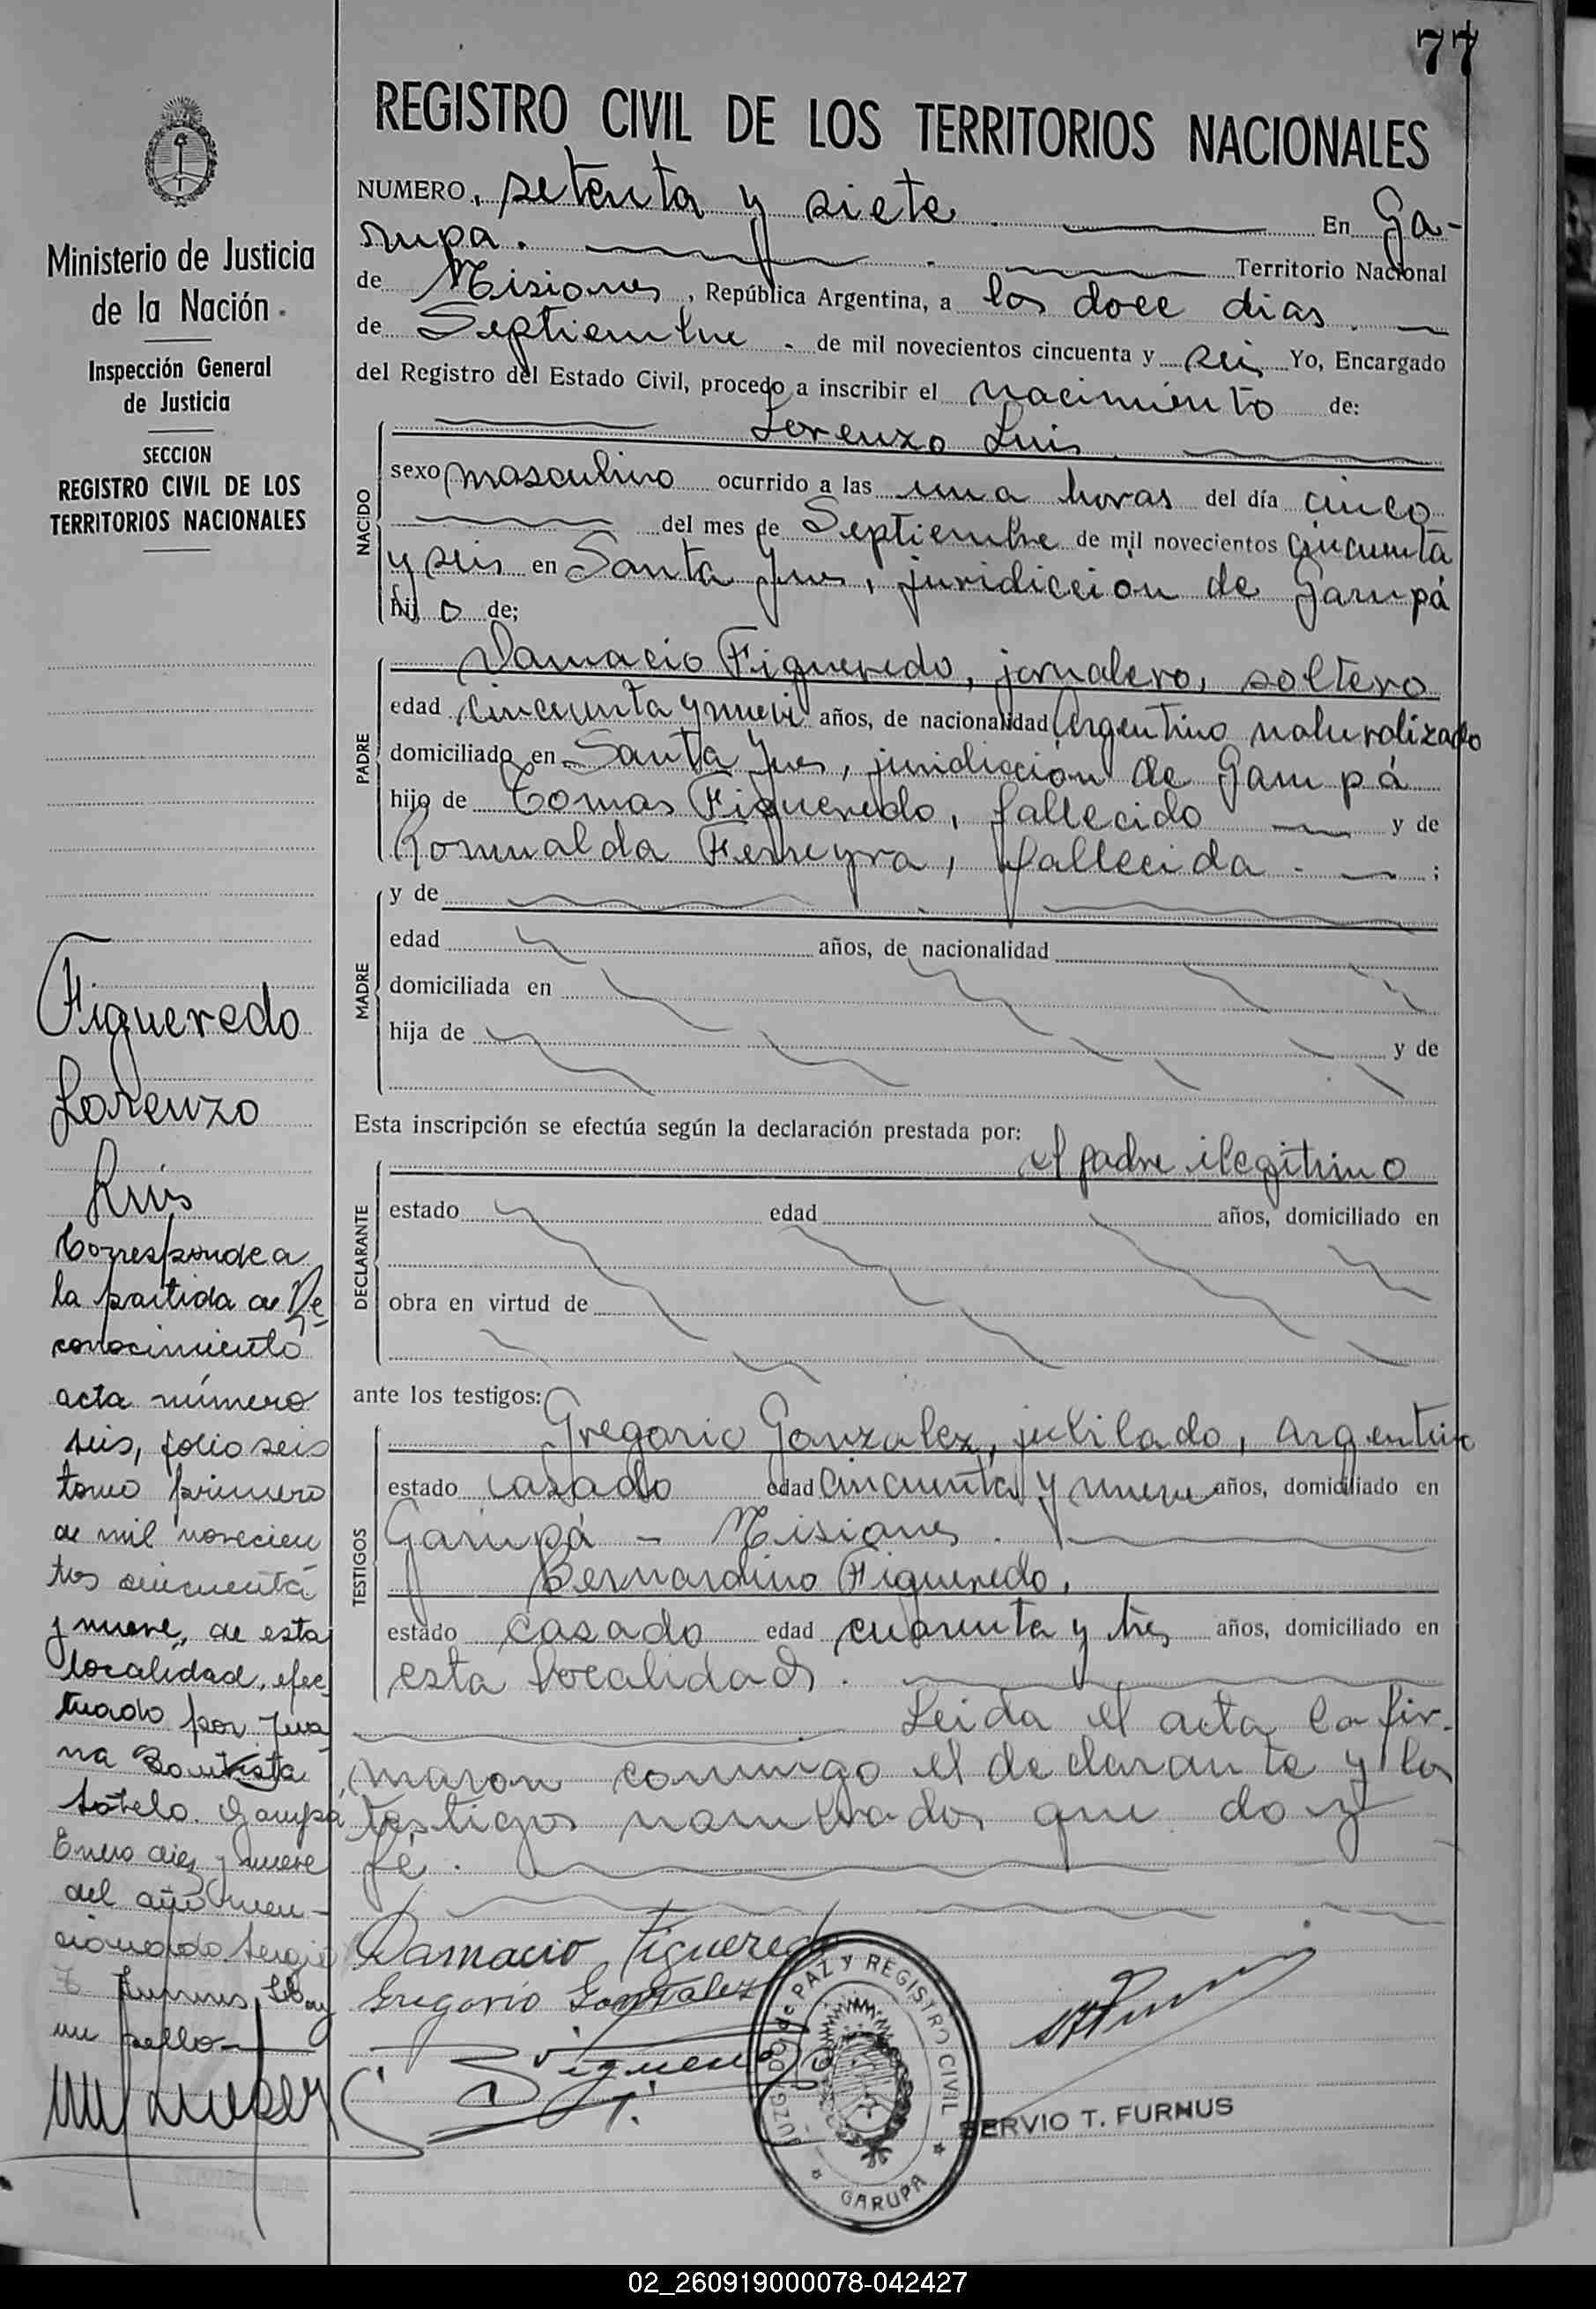 77
REGISTRO CIVIL DE LOS TERRITORIOS NACIONALES
NUMERO, setenta y siete. En Ga-
rupa. Territorio Nacional
de Misiones, República Argentina, a los doce dias.
de Septiembre. de mil novecientos cincuenta y seis Yo, Encargado
del Registro del Estado Civil, procedo a inscribir el nacimiento de:
NACIDO
Lorenzo Luis.
sexo masculino ocurrido a las una horas del día cinco
del mes de Septiembre de mil novecientos cincuenta
y seis en Santa Ines, juridiccion de Garupá
hijo de;
PADRE
Damacio Figueredo, jornalero, soltero
edad cincuenta y nueve años, de nacionalidad Argentino naturalizado
domiciliado en Santa Ines, juridiccion de Garupá
hijo de Tomas Figueredo, fallecido y de
Romualda Ferreyra, fallecida. ;
MADRE
y de
edad años, de nacionalidad
domiciliada en
hija de y de
Esta inscripción se efectúa según la declaración prestada por:
el padre ilegitimo
DECLARANTE
estado edad años, domiciliado en
obra en virtud de
ante los testigos:
TESTIGOS
Gregorio Gonzalez, jubilado, argentino
estado casado edad cincuenta y nueve años, domiciliado en
Garupá - Misiones.
Bernardino Figueredo,
estado casado edad cuarenta y tres años, domiciliado en
esta localidad.
Leida el acta la fir-
maron conmigo el declarante y los
testigos nombrados que doy
fe.
Damacio Figueredo
Gregorio Gonzalez
JUZGADO de PAZ y REGISTRO CIVIL
GARUPA
SERVIO T. FURNUS
Ministerio de Justicia
de la Nación
Inspección General
de Justicia
SECCION
REGISTRO CIVIL DE LOS
TERRITORIOS NACIONALES
Figueredo
Lorenzo
Luis
Corresponde a
la partida de Re-
conocimiento
acta número
seis, folio seis
tomo primero
de mil novecien
tos cincuenta
y nueve, de esta
localidad, efec
tuado por Jua
na Bautista
Sotelo. Garupá
Enero diez y nueve
del año men-
cionado.
un sello-
02_260919000078-042427